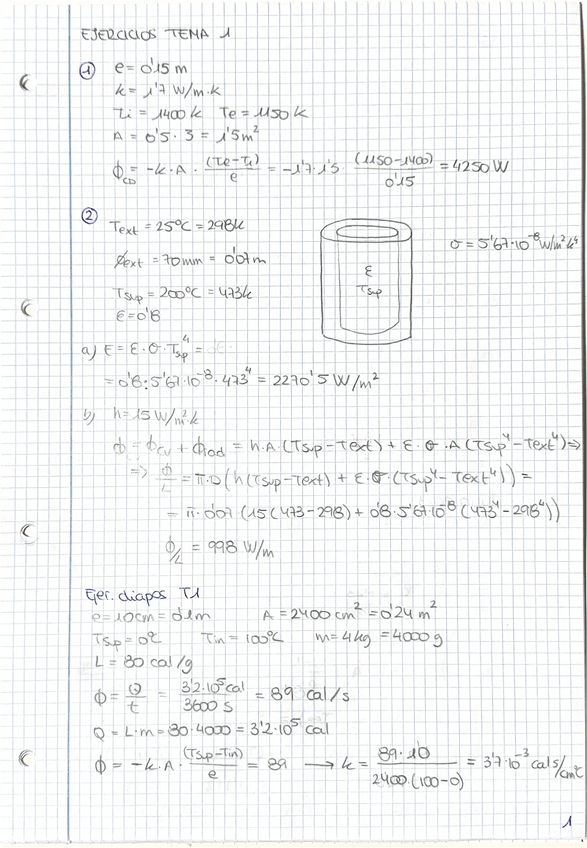 EJERCICIOS TEMA 1
① e = 0'15 m
k = 1'7 W/m·k
Ti = 1400 k Te = 1150 k
A = 0'5 · 3 = 1'5 m²
ϕCD = -k·A · (Te-Ti)/e = -1'7·1'5 · (1150-1400)/0'15 = 4250 W
② Text = 25ºC = 298k
σ = 5'67·10⁻⁸ W/m²k⁴
ϕext = 70 mm = 0'07 m
ε
Tsup
Tsup = 200ºC = 473k
ε = 0'8
a) E = ε·σ·Tsup⁴ =
= 0'8·5'67·10⁻⁸·473⁴ = 2270'5 W/m²
b) h = 15 W/m²k
ϕ = ϕcv + ϕrad = h·A·(Tsup-Text) + ε·σ·A(Tsup⁴-Text⁴) ⇒
⇒ ϕ/L = π·D (h(Tsup-Text) + ε·σ·(Tsup⁴-Text⁴)) =
= π·0'07 (15(473-298) + 0'8·5'67·10⁻⁸(473⁴-298⁴))
ϕ/L = 998 W/m
Ejer. diapos T1
e = 10cm = 0'1m A = 2400 cm² = 0'24 m²
Tsup = 0º Tin = 100ºC m = 4kg = 4000 g
L = 80 cal/g
ϕ = Q/t = 3'2·10⁵cal/3600 s = 89 cal/s
Q = L·m = 80·4000 = 3'2·10⁵ cal
ϕ = -k·A · (Tsup-Tin)/e = 89 → k = 89·10/2400·(100-0) = 3'7·10⁻³ cal s/cm²
1